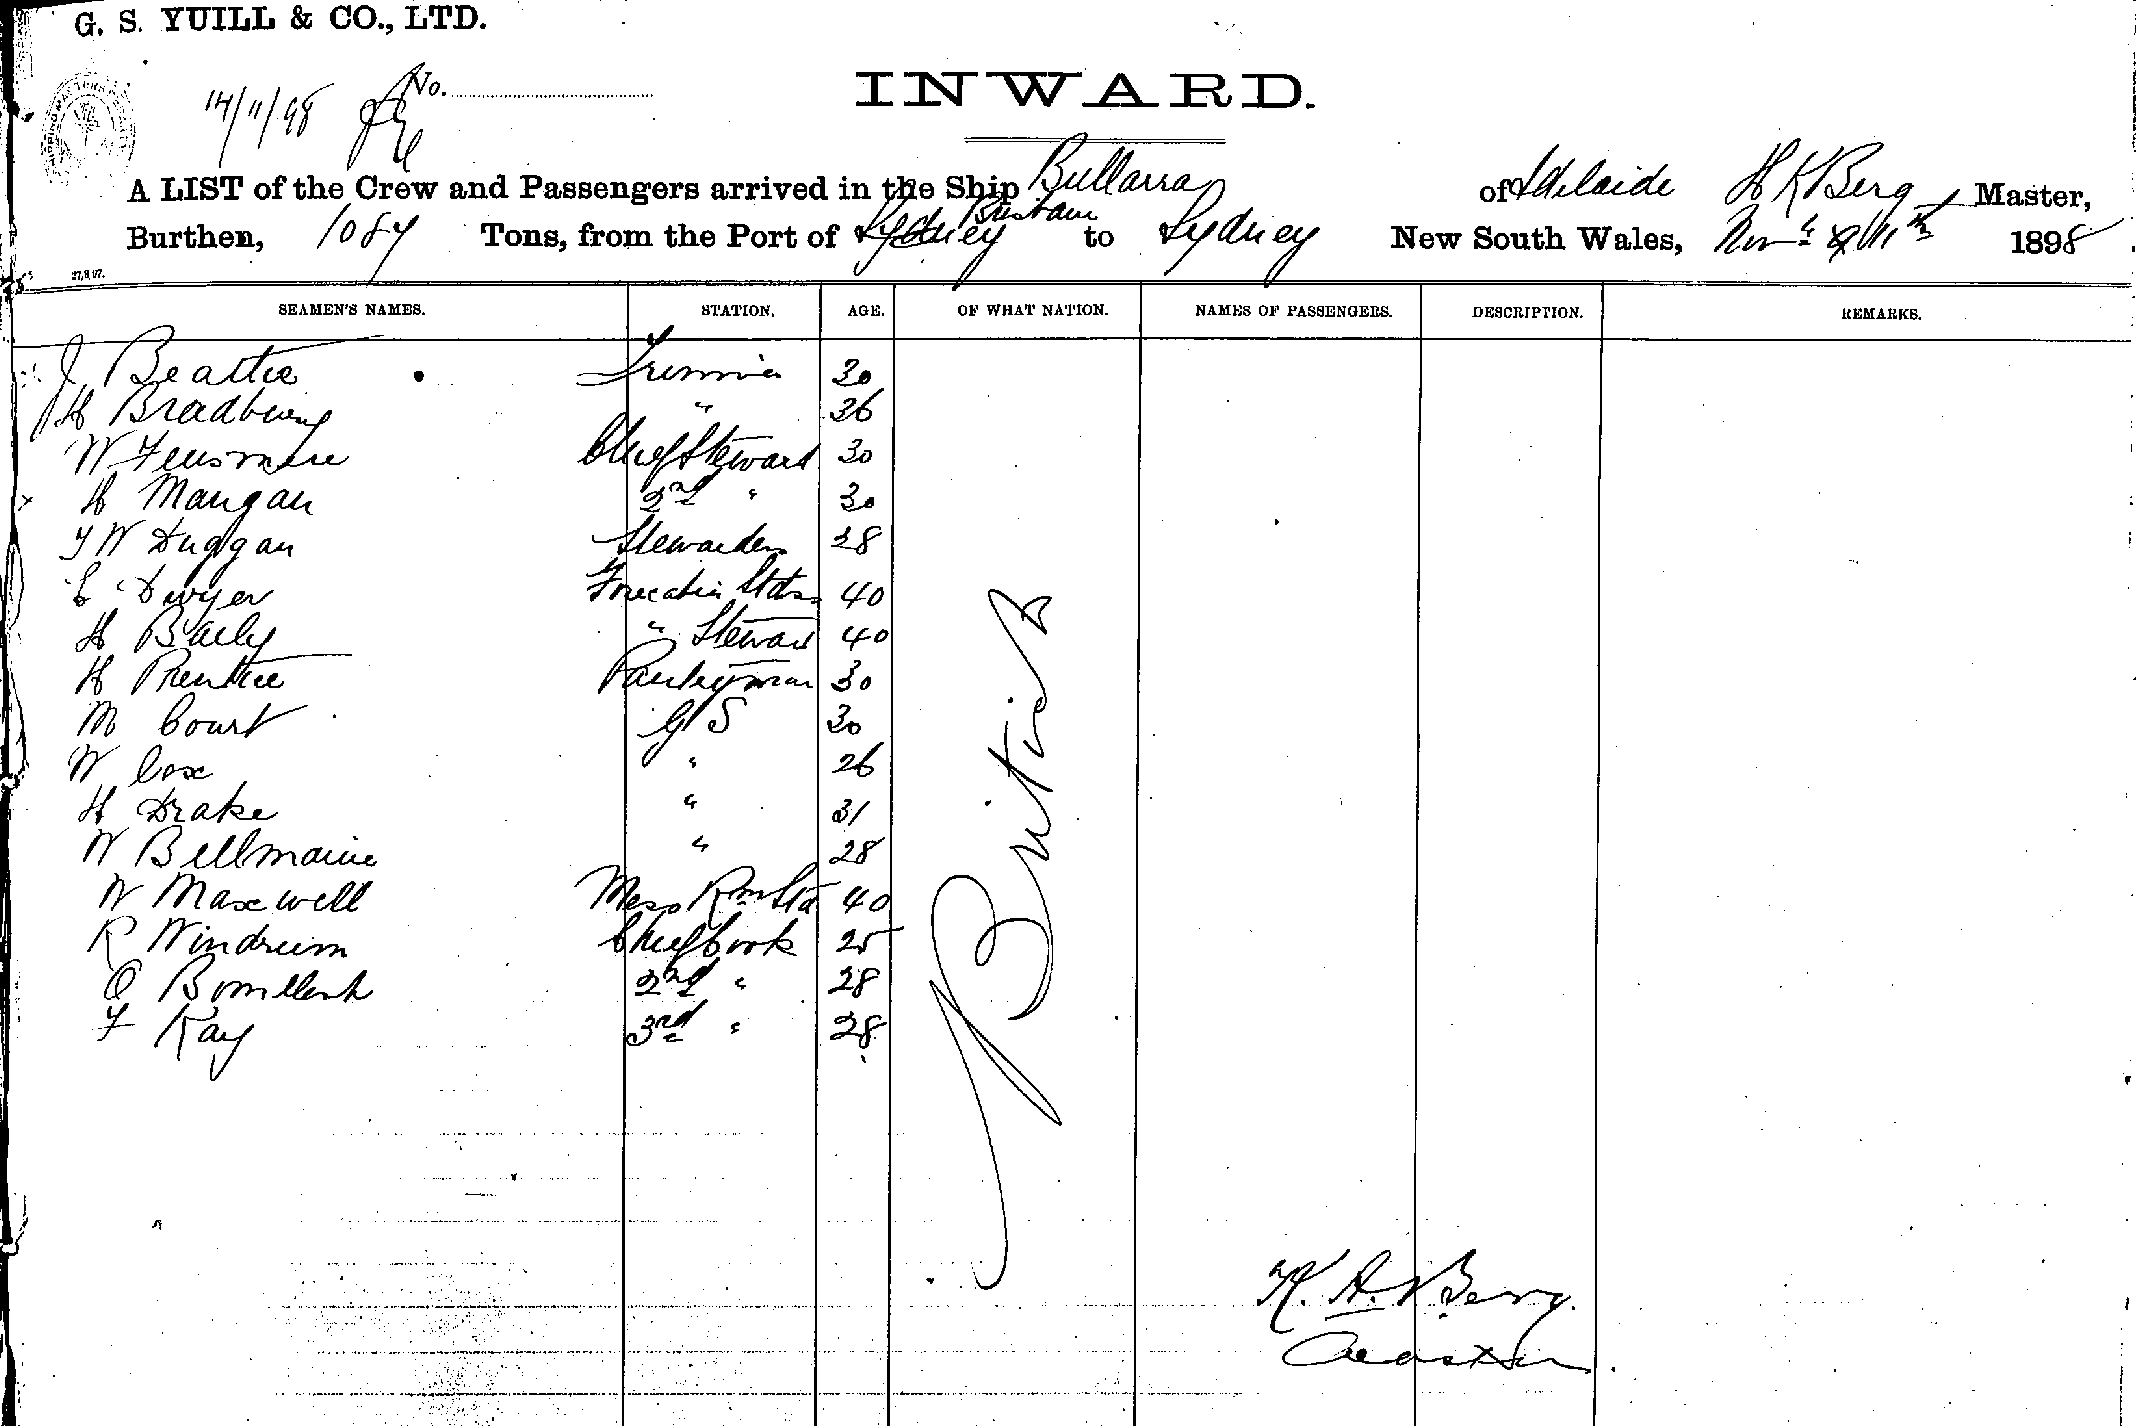 G. S. YUILL & CO., LTD.
14/11/98 No.
INWARD.
A LIST of the Crew and Passengers arrived in the Ship Bullarra of Adelaide H K Berg Master,
Burthen, 1084 Tons, from the Port of Sydney Brisbane to Sydney New South Wales, Nov 11th 1898
27.9.97.
SEAMEN'S NAMES. STATION. AGE. OF WHAT NATION. NAMES OF PASSENGERS. DESCRIPTION. REMARKS.
J Beattie Trimmer 30
H Bradbury " 36
W 30 Chief Steward
H Mangan 2nd " 30
J W Duggan Stewardess 28
E Dwyer 40
H Baily " Steward 40
H Prentice Pantryman 30
M Court G S 30
W Cox " 26
H Drake " 31
W Bellmaine " 28
W Maxwell Mess Rm Std 40
R Windrum Chief Cook 25
O 2nd " 28
F Kay 3rd " 28
British
H. A. Berg.
Master